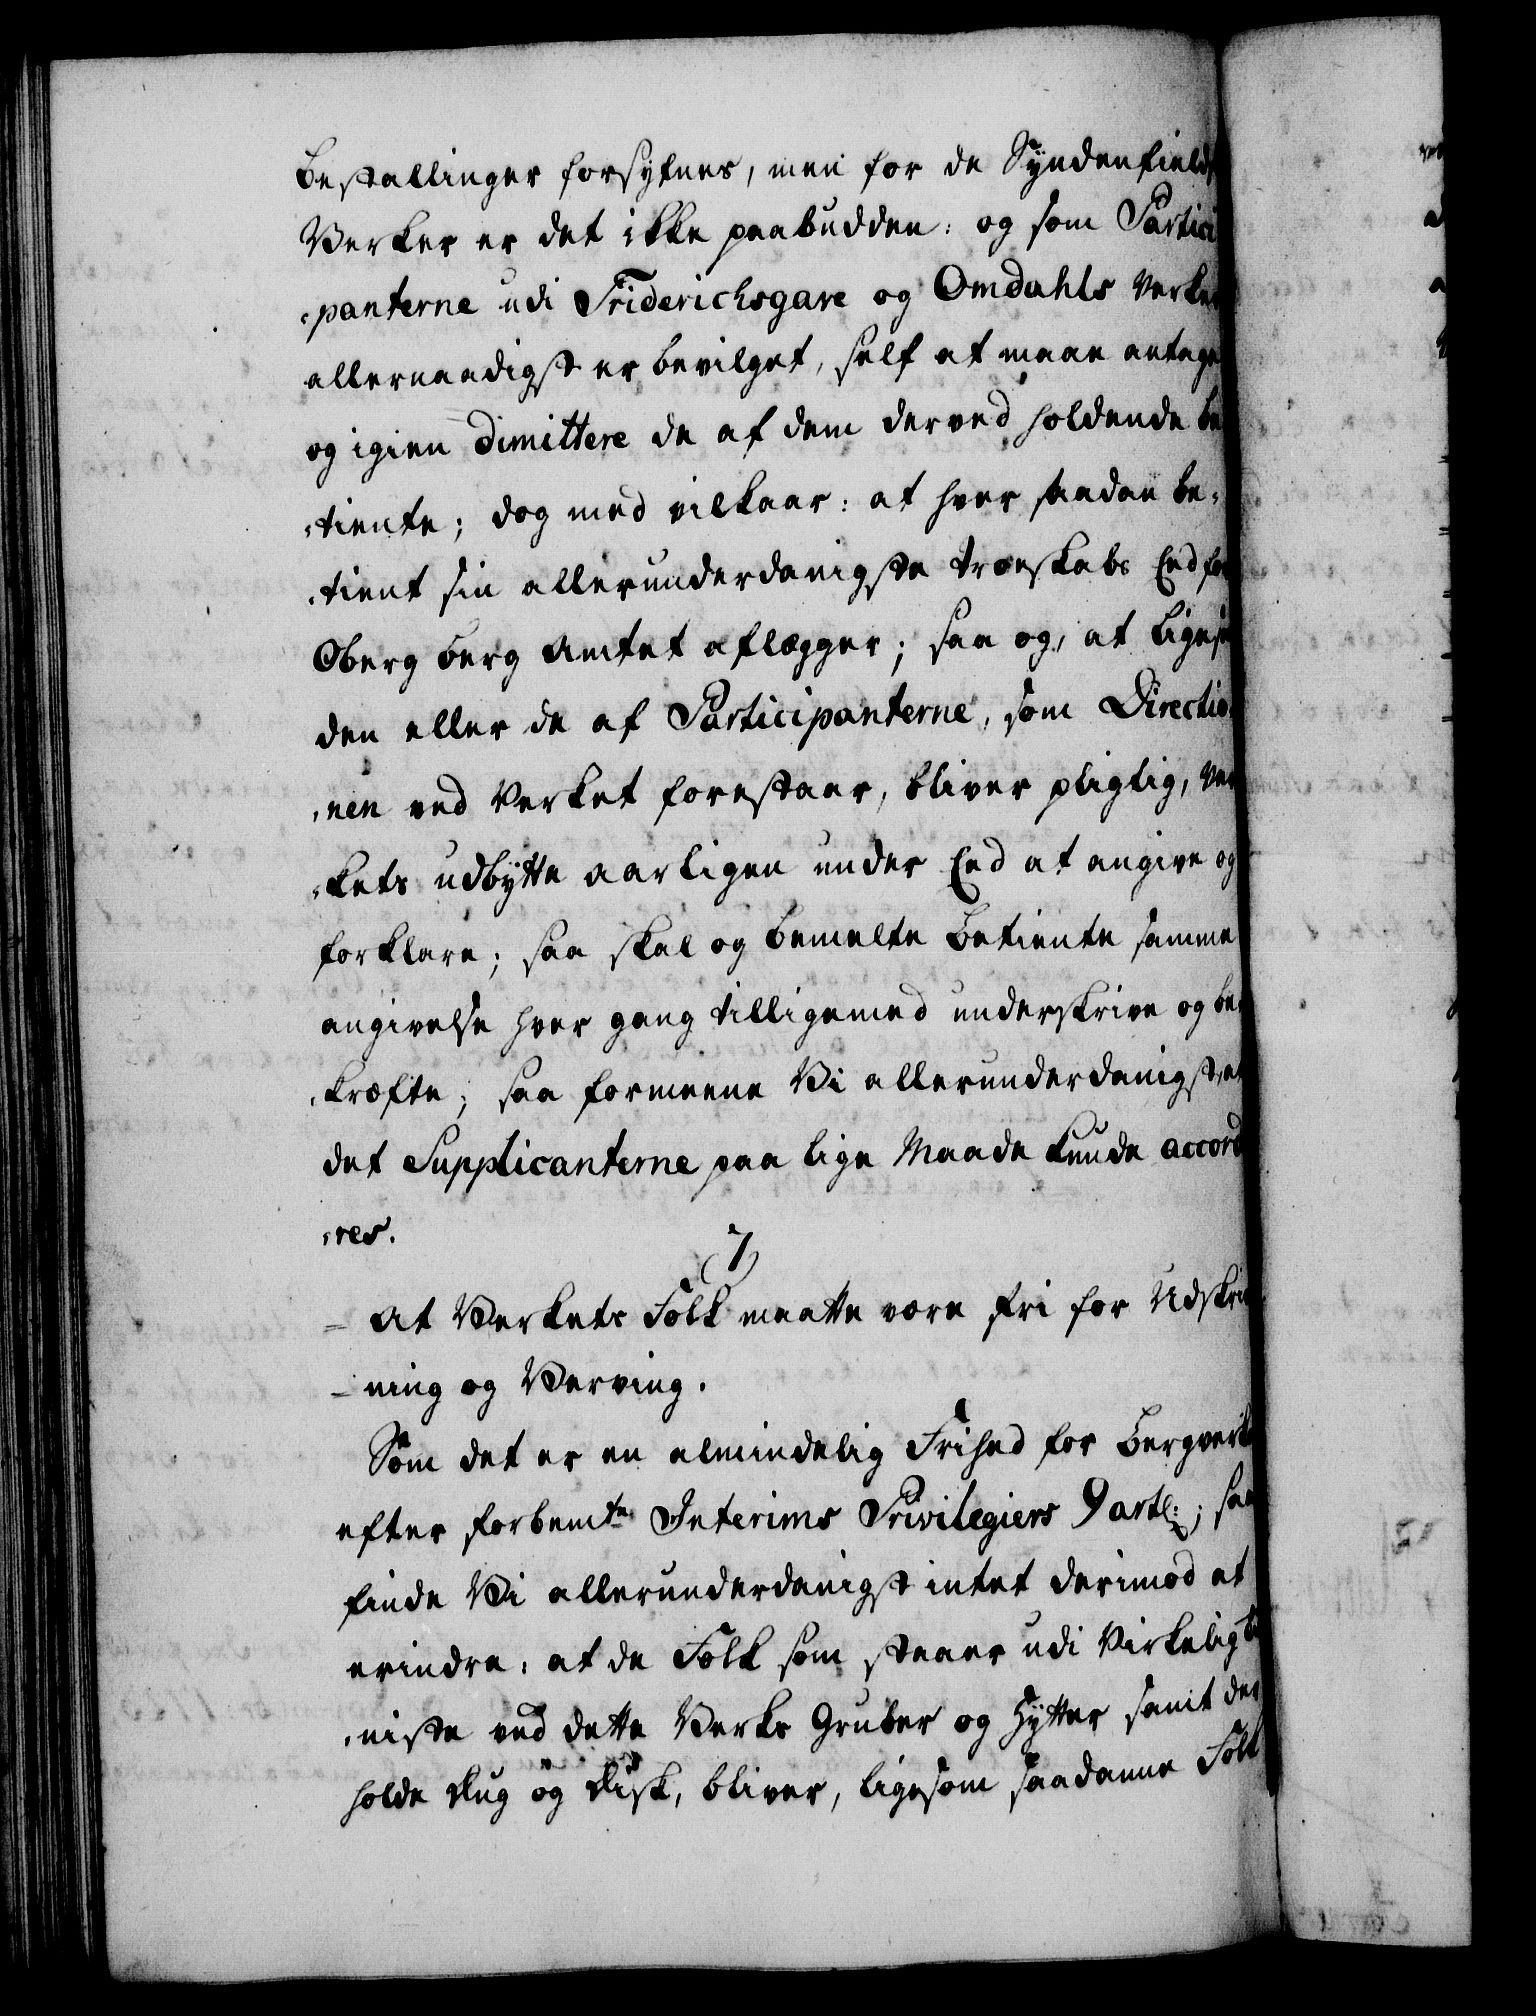 Bestallinger forsynes, men for de Syndenfields
Verker er det ikke paabudden: og som Partici
panterne udi Friderichsgave og Omdahls Verker
allernaadigst er bevilget, self at maae antage
og igien dimittere de af dem derved holdende be
tiente; dog med vilkaar: at hver saadan be
tient sin allerunderdanigste troeskabs Eed for
Oberg berg Amtet aflægger; saa og, at ligesom
den eller de af Participanterne, som Directio
nen ved Verket forestaar, bliver pligtig, Ver
kets udbytte aarligen under Eed at angive og
forklare; saa skal og bemelte Betiente samme
angivelse hver gang tilligemed underskrive og be
kræfte; saa formeene Vi allerunderdanigst, at
det Supplicanterne paa lige Maade kunde accorde
res.
7
- At Verkets Folk maatte være fri for Udskriv
- ning og Verving.
Som det er en almindelig Frihed for Bergverker
efter forbemte Interims Privilegiers 9 artl:; saa
finde Vi allerunderdanigst intet derimod at
erindre: at de Folk som staaer udi Virkelig tie
niste ved dette Verks Gruber og Hytter samt der
holde Dug og Disk, bliver, ligesom saadanne Folk